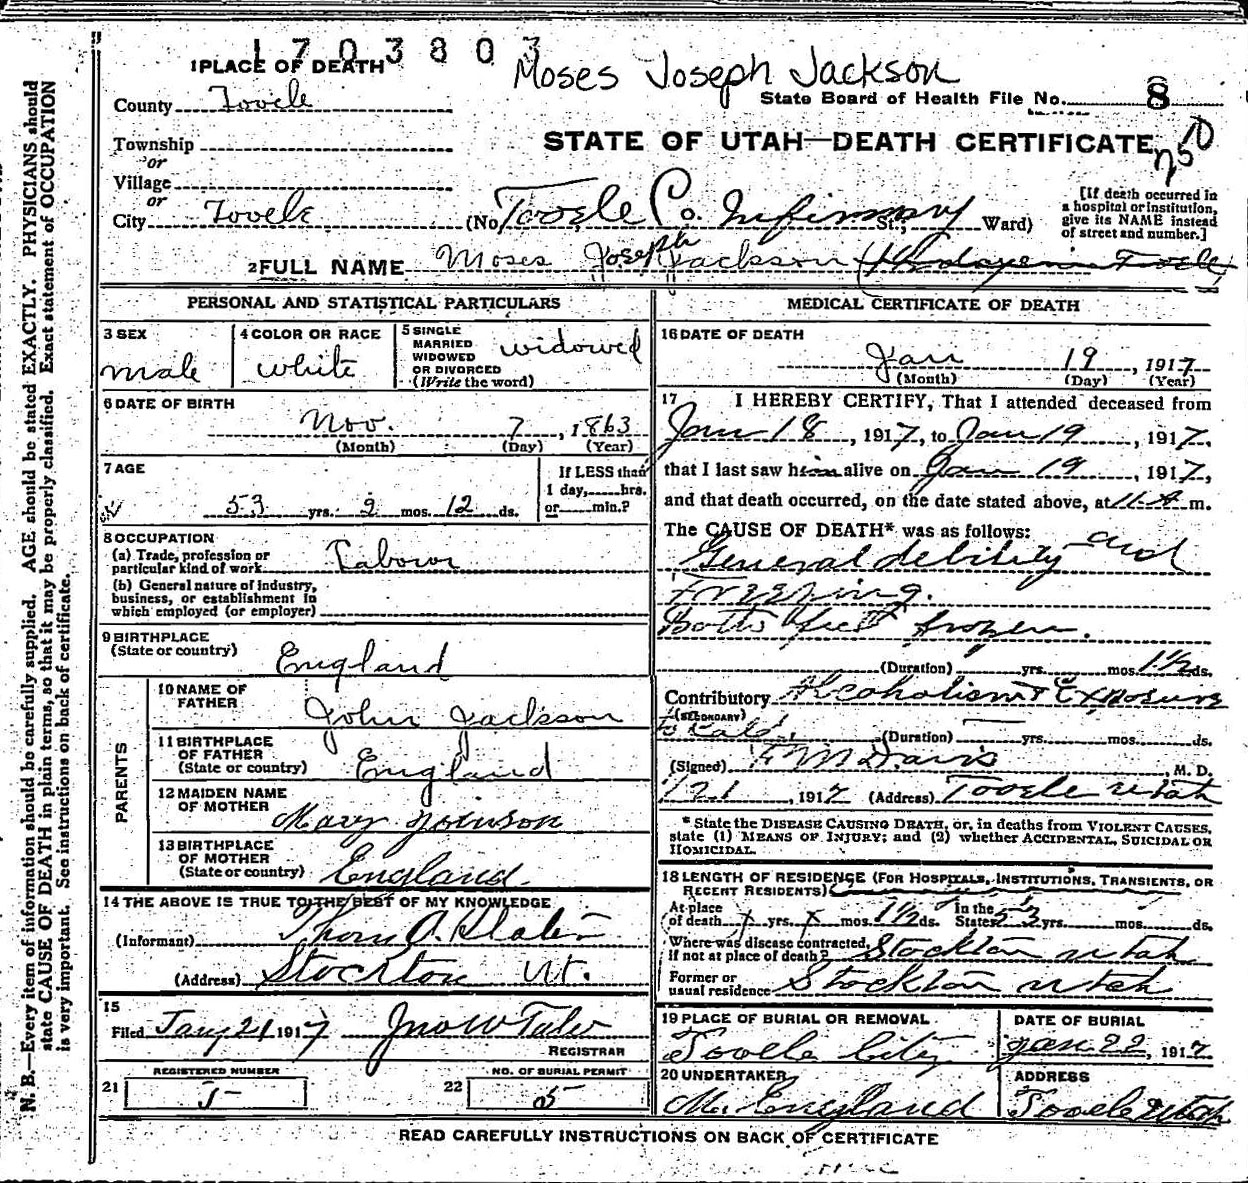 1703803
Moses Joseph Jackson
1 PLACE OF DEATH
County Tooele
State Board of Health File No. 8
Township
or
Village
or
City Tooele
STATE OF UTAH—DEATH CERTIFICATE
(No Tooele Co. Infirmary St.; Ward)
[If death occurred in
a hospital or institution,
give its NAME instead
of street and number.]
2 FULL NAME Moses Joseph Jackson
PERSONAL AND STATISTICAL PARTICULARS
3 SEX
male
4 COLOR OR RACE
white
5 SINGLE
MARRIED
WIDOWED
OR DIVORCED
(Write the word)
widowed
6 DATE OF BIRTH
Nov. 7, 1863
(Month) (Day) (Year)
7 AGE
53 yrs. 9 mos. 12 ds.
If LESS than
1 day, hrs.
or min.?
8 OCCUPATION
(a) Trade, profession or
particular kind of work Labour
(b) General nature of industry,
business, or establishment in
which employed (or employer)
9 BIRTHPLACE
(State or country) England
PARENTS
10 NAME OF
FATHER John Jackson
11 BIRTHPLACE
OF FATHER
(State or country) England
12 MAIDEN NAME
OF MOTHER Mary Joinson
13 BIRTHPLACE
OF MOTHER
(State or country) England.
14 THE ABOVE IS TRUE TO THE BEST OF MY KNOWLEDGE
(Informant) Thom A.
(Address) Stockton Ut.
15
Filed Jany 21 1917
REGISTRAR
REGISTERED NUMBER
21 5
NO. OF BURIAL PERMIT
22 5
MEDICAL CERTIFICATE OF DEATH
16 DATE OF DEATH
Jan 19, 1917
(Month) (Day) (Year)
17 I HEREBY CERTIFY, That I attended deceased from
Jan 18, 1917, to Jan 19, 1917,
that I last saw him alive on Jan 19, 1917,
and that death occurred, on the date stated above, at 11 A m.
The CAUSE OF DEATH* was as follows:
General debility and
Freezing.
Both feet frozen.
(Duration) yrs. mos. 1½ ds.
Contributory Alcoholism & Exposure
(SECONDARY)
to Cold. (Duration) yrs. mos. ds.
(Signed) F M Davis, M. D.
1/21, 1917 (Address) Tooele Utah
* State the DISEASE CAUSING DEATH, or, in deaths from VIOLENT CAUSES,
state (1) MEANS OF INJURY; and (2) whether ACCIDENTAL, SUICIDAL OR
HOMICIDAL.
18 LENGTH OF RESIDENCE (FOR HOSPITALS, INSTITUTIONS, TRANSIENTS, OR
RECENT RESIDENTS)
At place
of death x yrs. x mos. 1½ ds. In the
State 53 yrs. mos. ds.
Where was disease contracted,
if not at place of death? Stockton Utah
Former or
usual residence Stockton Utah
19 PLACE OF BURIAL OR REMOVAL
Tooele City
DATE OF BURIAL
Jan 22, 1917
20 UNDERTAKER
M. England
ADDRESS
Tooele Utah
READ CAREFULLY INSTRUCTIONS ON BACK OF CERTIFICATE
N. B.—Every item of information should be carefully supplied. AGE should be stated EXACTLY. PHYSICIANS should
state CAUSE OF DEATH in plain terms, so that it may be properly classified. Exact statement of OCCUPATION
is very important. See instructions on back of certificate.